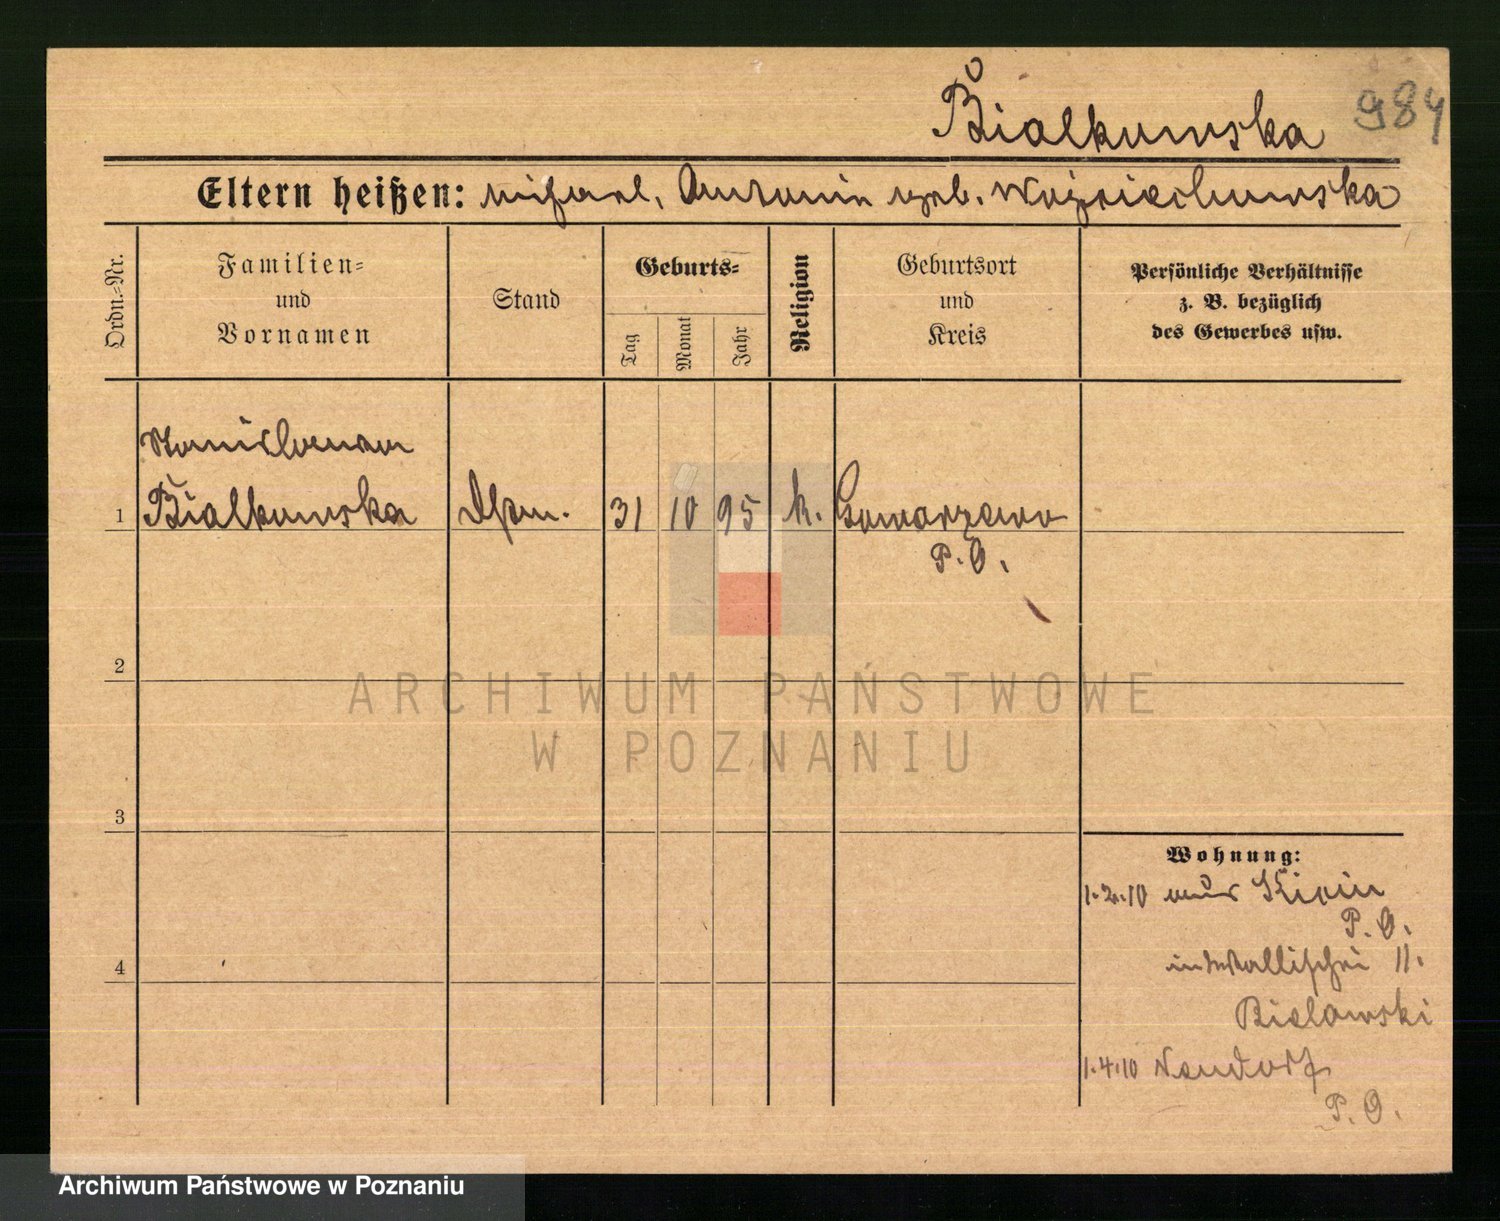 Bialkowska 984
Eltern heißen: Michael, Antonie geb. Wojciechowska
Ordn.=Nr.
Familien=
und
Vornamen
Stand
Geburts=
Tag
Monat
Jahr
Religion
Geburtsort
und
Kreis
Persönliche Verhältnisse
z. B. bezüglich
des Gewerbes usw.
Stanislawa
1 Bialkowska 31 10 95 k. Gowarzewo
P. O.
2
3
4
Wohnung:
1.2.10 aus Kicin
P. O.
in Wallischei 11.
Bielawski
1.4.10 Neudorf
P. O.
ARCHIWUM PAŃSTWOWE
W POZNANIU
Archiwum Państwowe w Poznaniu